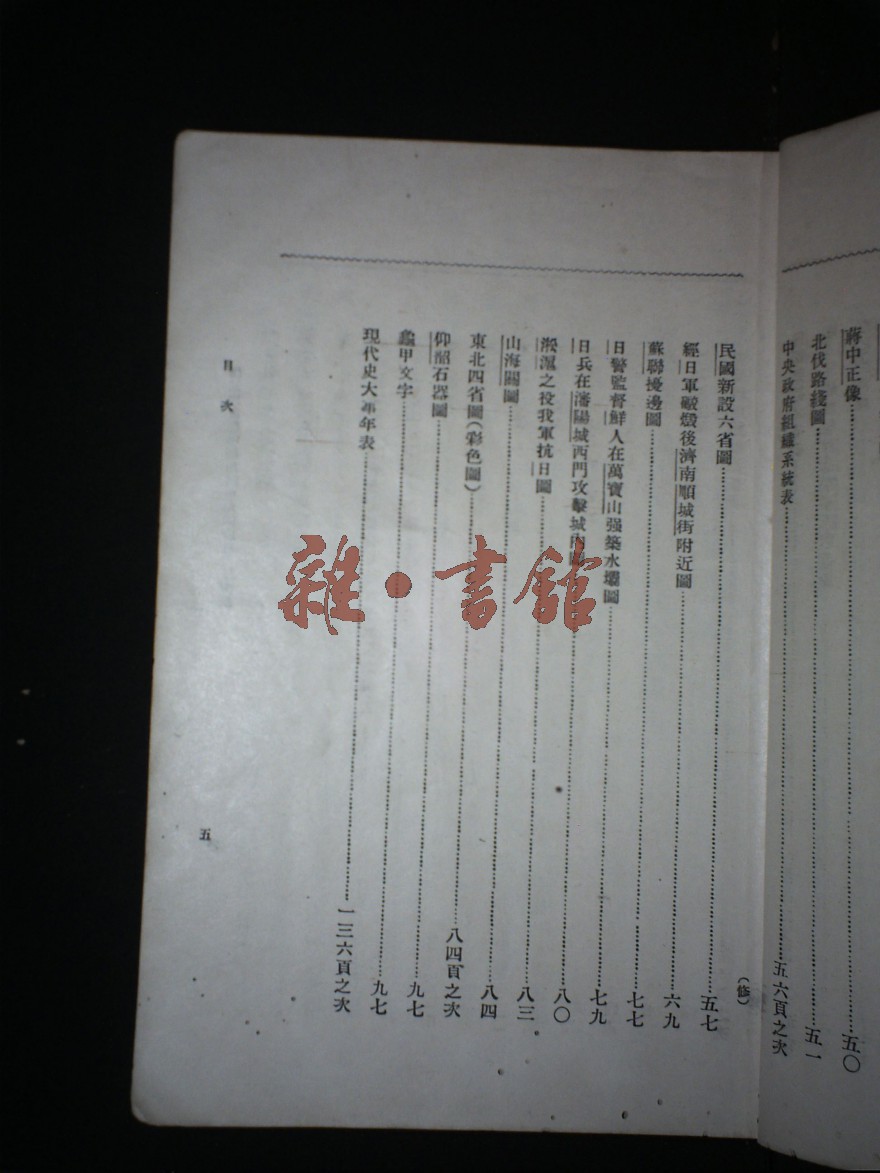 蔣中正像 五〇
北伐路綫圖 五一
中央政府組織系統表 五六頁之次
(修)
民國新設六省圖 五七
經日軍礮燬後濟南順城街附近圖 六九
蘇聯擾邊圖 七七
日警監督鮮人在萬寶山强築水壩圖 七九
日兵在瀋陽城西門攻擊城內圖 八〇
淞滬之役我軍抗日圖 八三
山海關圖 八四
東北四省圖(彩色圖) 八四頁之次
仰韶石器圖 九七
龜甲文字 九七
現代史大事年表 一三六頁之次
目次
五
雜·書館